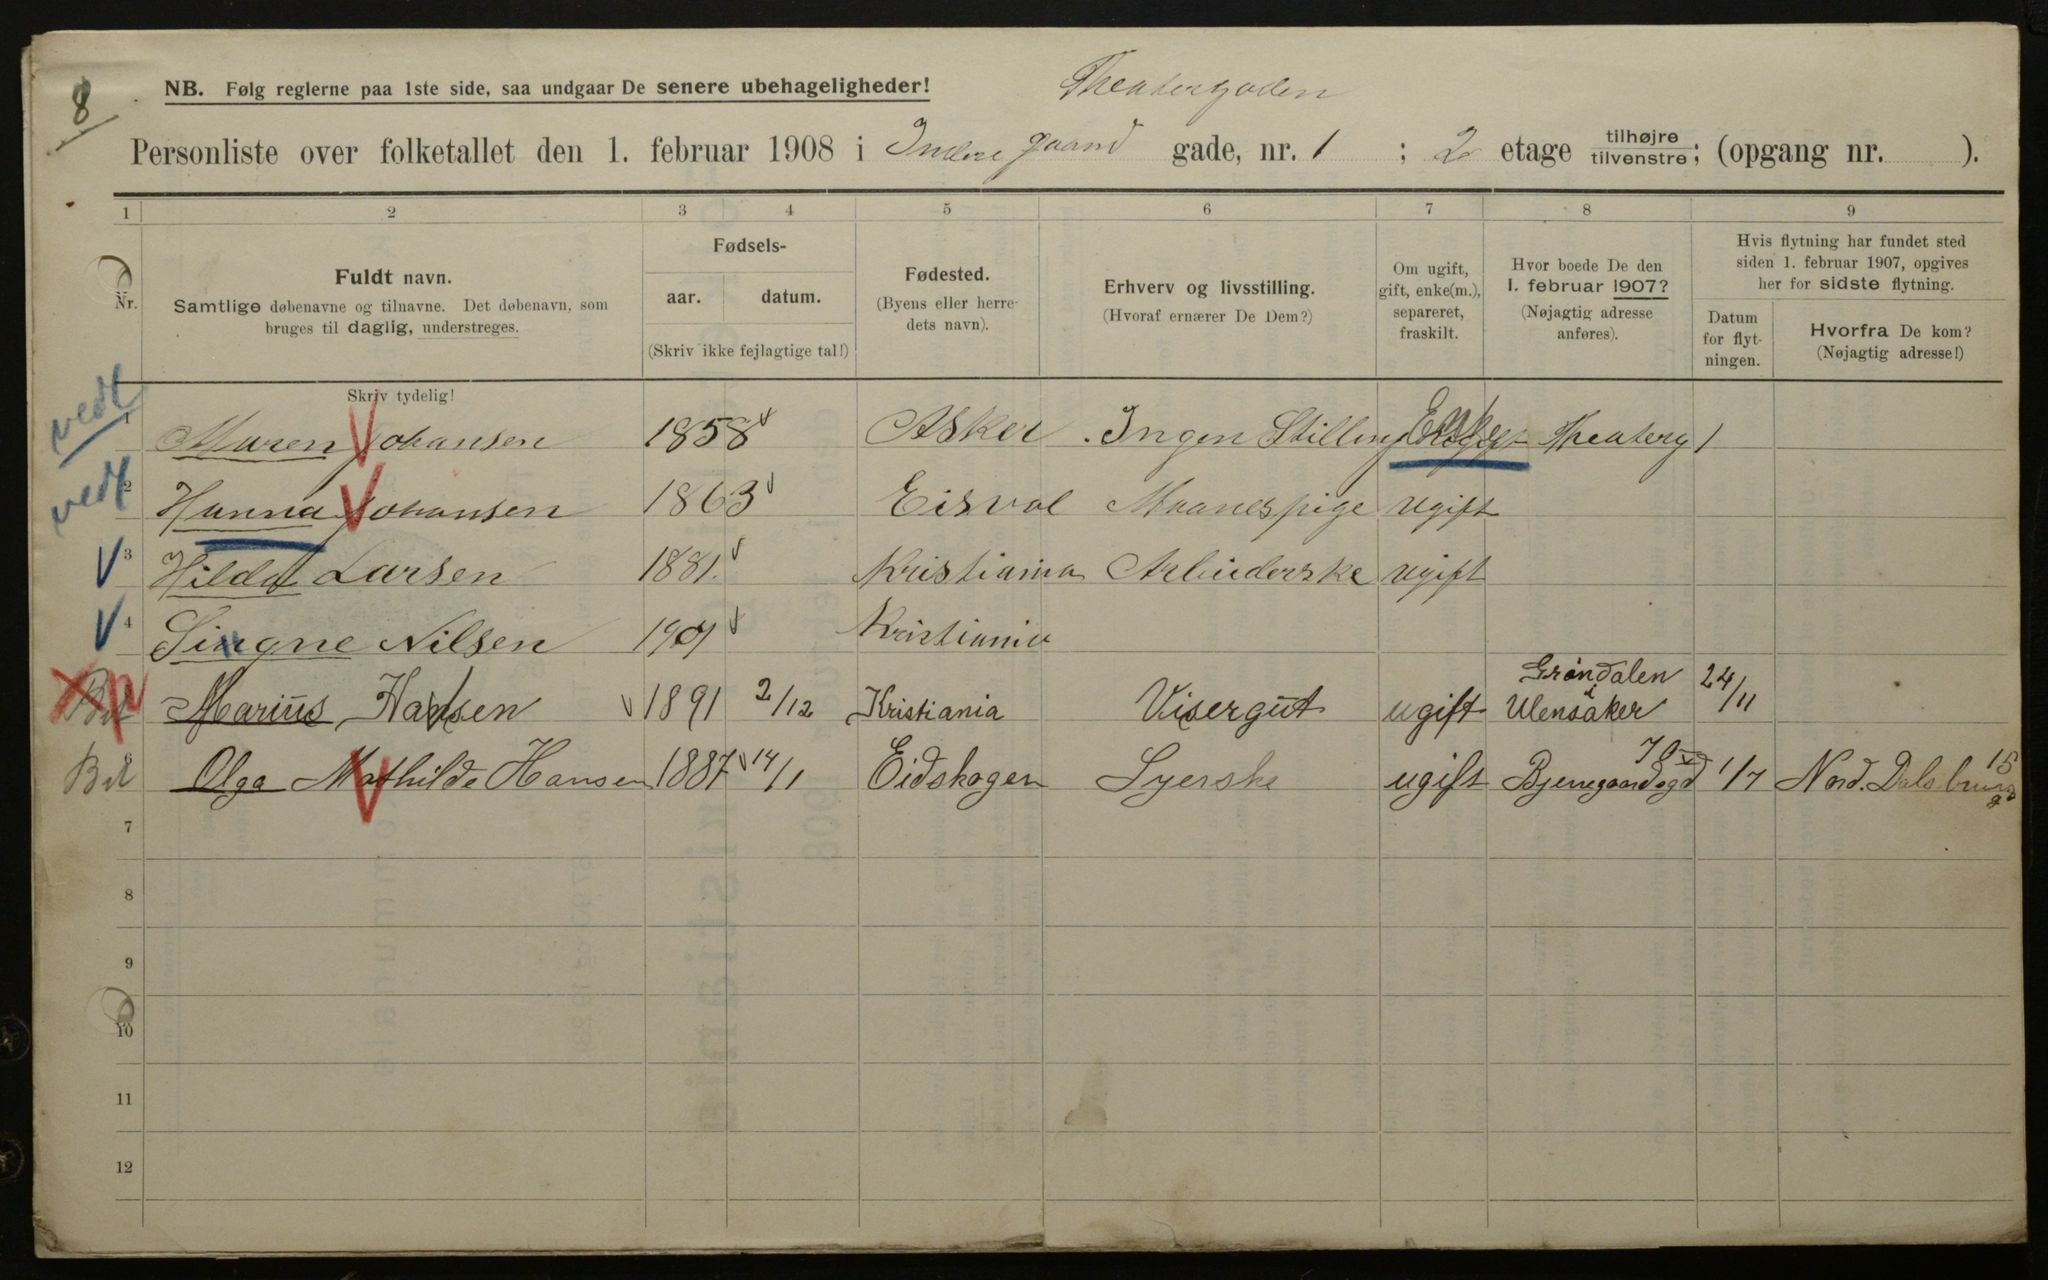 8
NB. Følg reglerne paa 1ste side, saa undgaar De senere ubehageligheder!
Theatergaden
Personliste over folketallet den 1. februar 1908 i Indre gaard gade, nr. 1 ; 2 etage tilhøjre/tilvenstre; (opgang nr. ).
1 2 3 4 5 6 7 8 9
Nr.
Fuldt navn.
Samtlige døbenavne og tilnavne. Det døbenavn, som
bruges til daglig, understreges.
Skriv tydelig!
Fødsels-
aar. datum.
(Skriv ikke fejlagtige tal!)
Fødested.
(Byens eller herre-
dets navn).
Erhverv og livsstilling.
(Hvoraf ernærer De Dem?)
Om ugift,
gift, enke(m.),
separeret,
fraskilt.
Hvor boede De den
1. februar 1907?
(Nøjagtig adresse
anføres).
Hvis flytning har fundet sted
siden 1. februar 1907, opgives
her for sidste flytning.
Datum
for flyt-
ningen.
Hvorfra De kom?
(Nøjagtig adresse!)
vedt 1 Maren Johansen 1858 Asker Ingen Stilling Enke Theaterg 1
vedt 2 Hanna Johansen 1863 Eisvol Maanespige ugift
3 Hilda Larsen 1881. Kristiania Arbeiderske ugift
4 Singne Nilsen 1901 Kristiania
Marius Hansen 1891 2/12 Kristiania Visergut ugift Grøndalen i Ulensaker 24/11
6 Olga Mathilde Hansen 1887 14/1 Eidskogen Syerske ugift 1/7 Nord. Dalsbrug 15
7
8
9
10
11
12